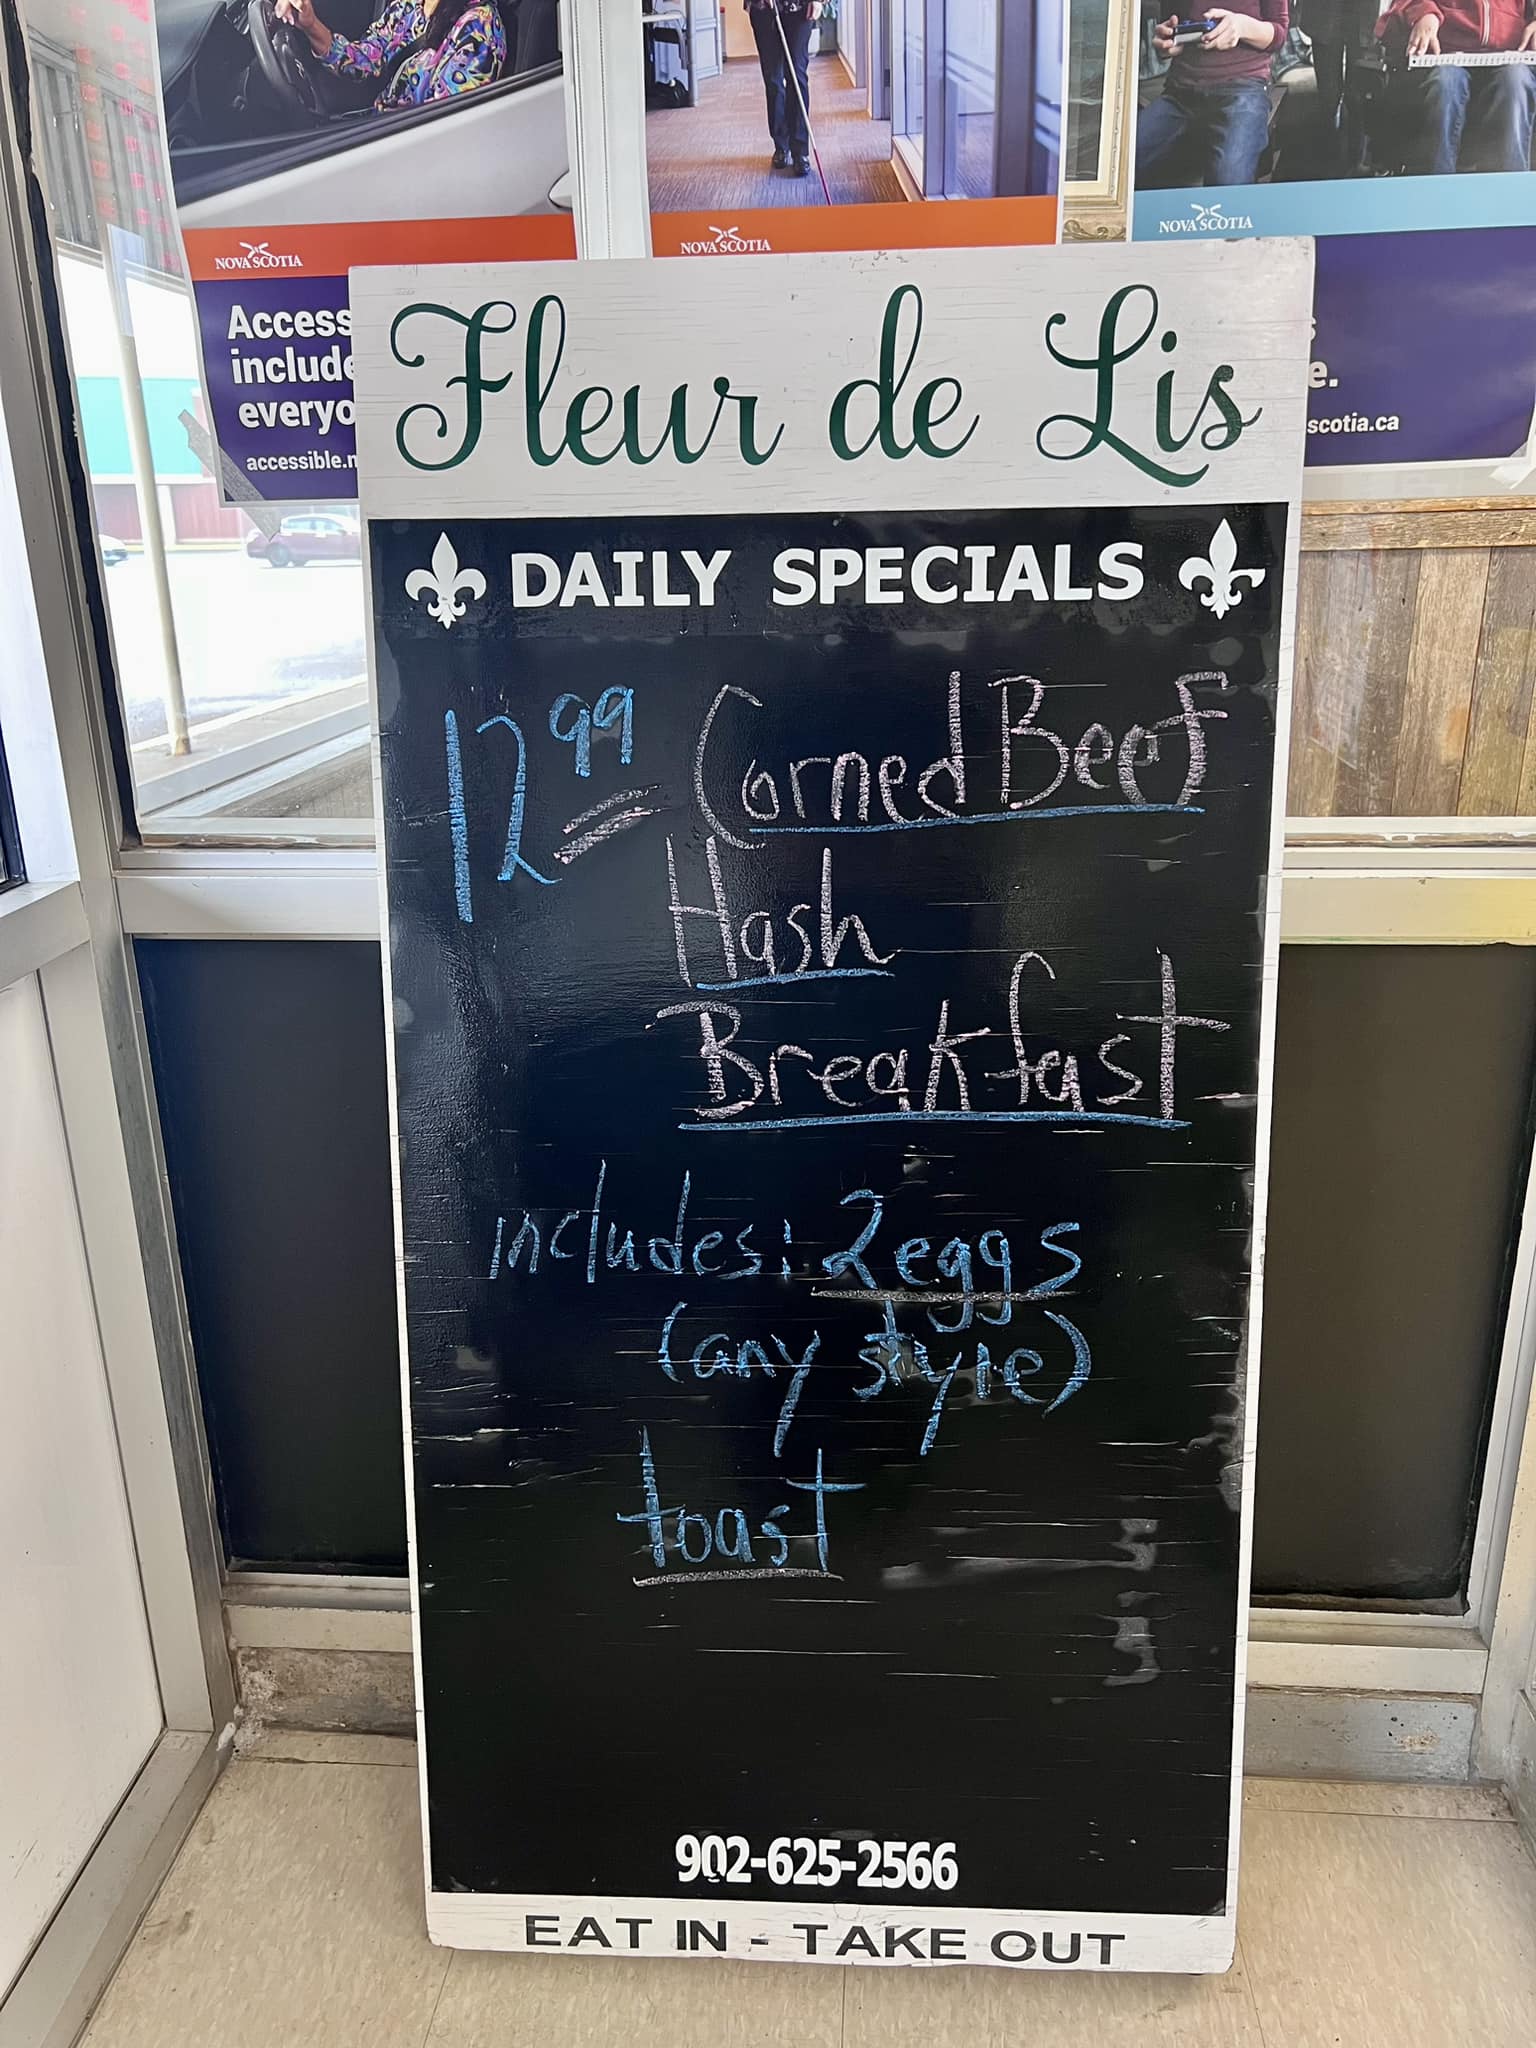 NOVA SCOTIA
NOVA SCOTIA
NOVA SCOTIA
Access
include
everyo
accessible.n
e.
scotia.ca
Fleur de Lis
DAILY SPECIALS
12.99 Corned Beef
Hash
Breakfast
includes: 2 eggs
(any style)
toast
902-625-2566
EAT IN - TAKE OUT